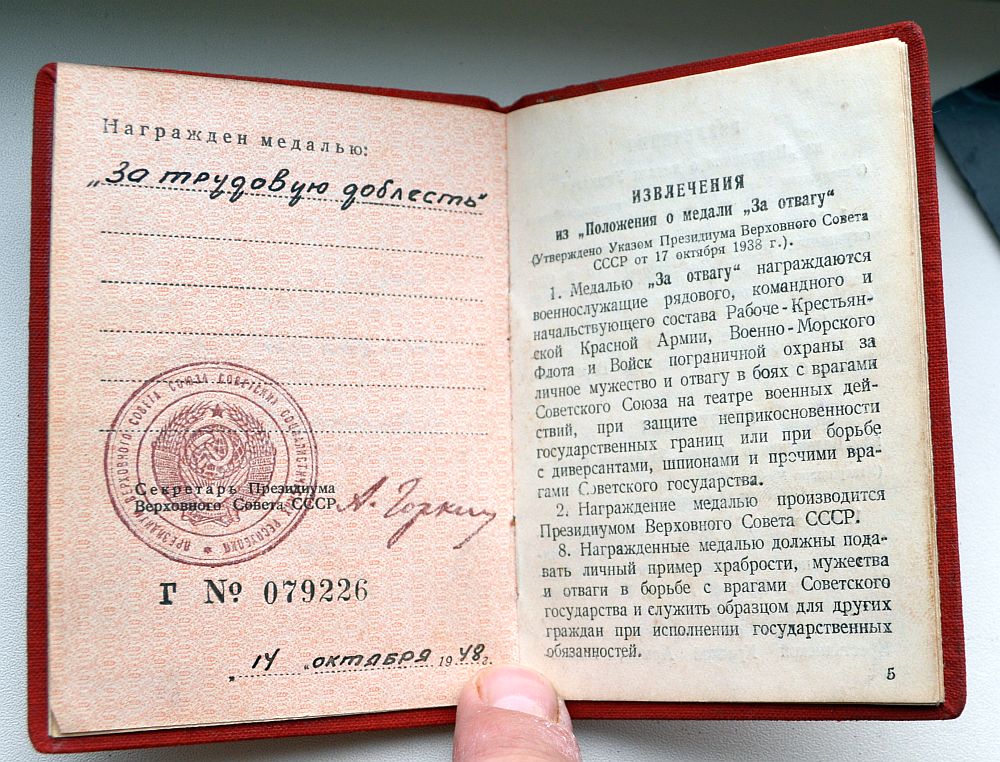 Награжден медалью:
„За трудовую доблесть“
ПРЕЗИДИУМ ВЕРХОВНОГО СОВЕТА СОЮЗА СОВЕТСКИХ СОЦИАЛИСТИЧЕСКИХ РЕСПУБЛИК
Секретарь Президиума
Верховного Совета СССР А. Горкин
Г № 079226
14 октября 1948 г.
ИЗВЛЕЧЕНИЯ
из „Положения о медали „За отвагу“
(Утверждено Указом Президиума Верховного Совета
СССР от 17 октября 1938 г.).
1. Медалью „За отвагу“ награждаются
военнослужащие рядового, командного и
начальствующего состава Рабоче-Крестьян-
ской Красной Армии, Военно-Морского
Флота и Войск пограничной охраны за
личное мужество и отвагу в боях с врагами
Советского Союза на театре военных дей-
ствий, при защите неприкосновенности
государственных границ или при борьбе
с диверсантами, шпионами и прочими вра-
гами Советского государства.
2. Награждение медалью производится
Президиумом Верховного Совета СССР.
8. Награжденные медалью должны пода-
вать личный пример храбрости, мужества
и отваги в борьбе с врагами Советского
государства и служить образцом для других
граждан при исполнении государственных
обязанностей.
5